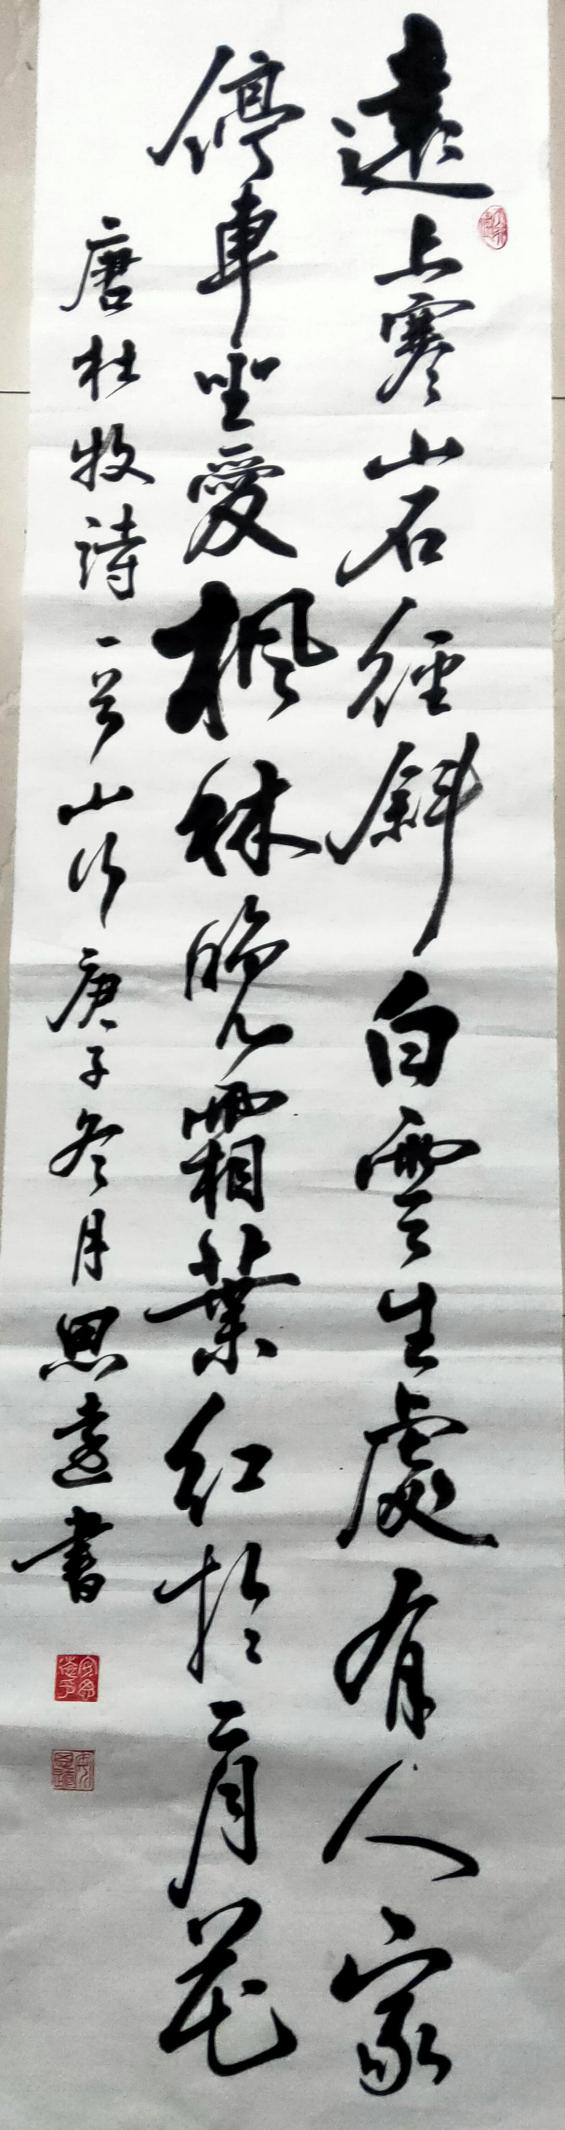 遠上寒山石徑斜白雲生處有人家
停車坐愛楓林晚霜葉紅於二月花
唐杜牧詩一首山行庚子冬月思遠書